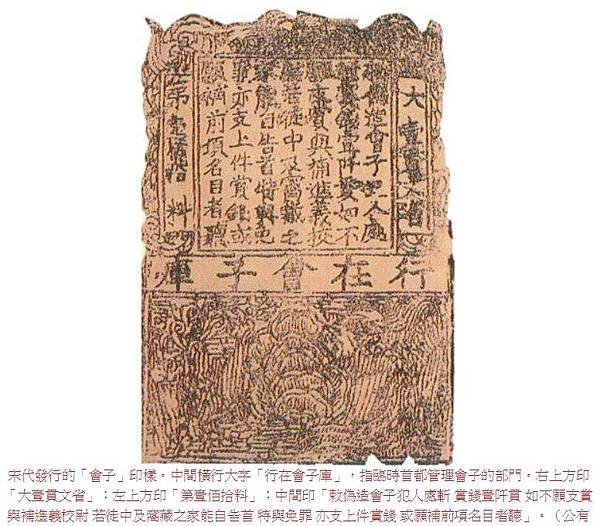 大壹貫文省
敕偽造會子犯人處
斬賞錢壹阡貫如不
願支賞與補進義校
尉若徒中及窩藏之
家能自告首特與免
罪亦支上件賞錢或
願補前項名目者聽
第壹佰拾料
行在會子庫
宋代發行的「會子」印樣。中間橫行大字「行在會子庫」，指臨時首都管理會子的部門。右上方印
「大壹貫文省」；左上方印「第壹佰拾料」；中間印「敕偽造會子犯人處斬 賞錢壹阡貫 如不願支賞
與補進義校尉 若徒中及窩藏之家能自告首 特與免罪 亦支上件賞錢 或願補前項名目者聽」。（公有